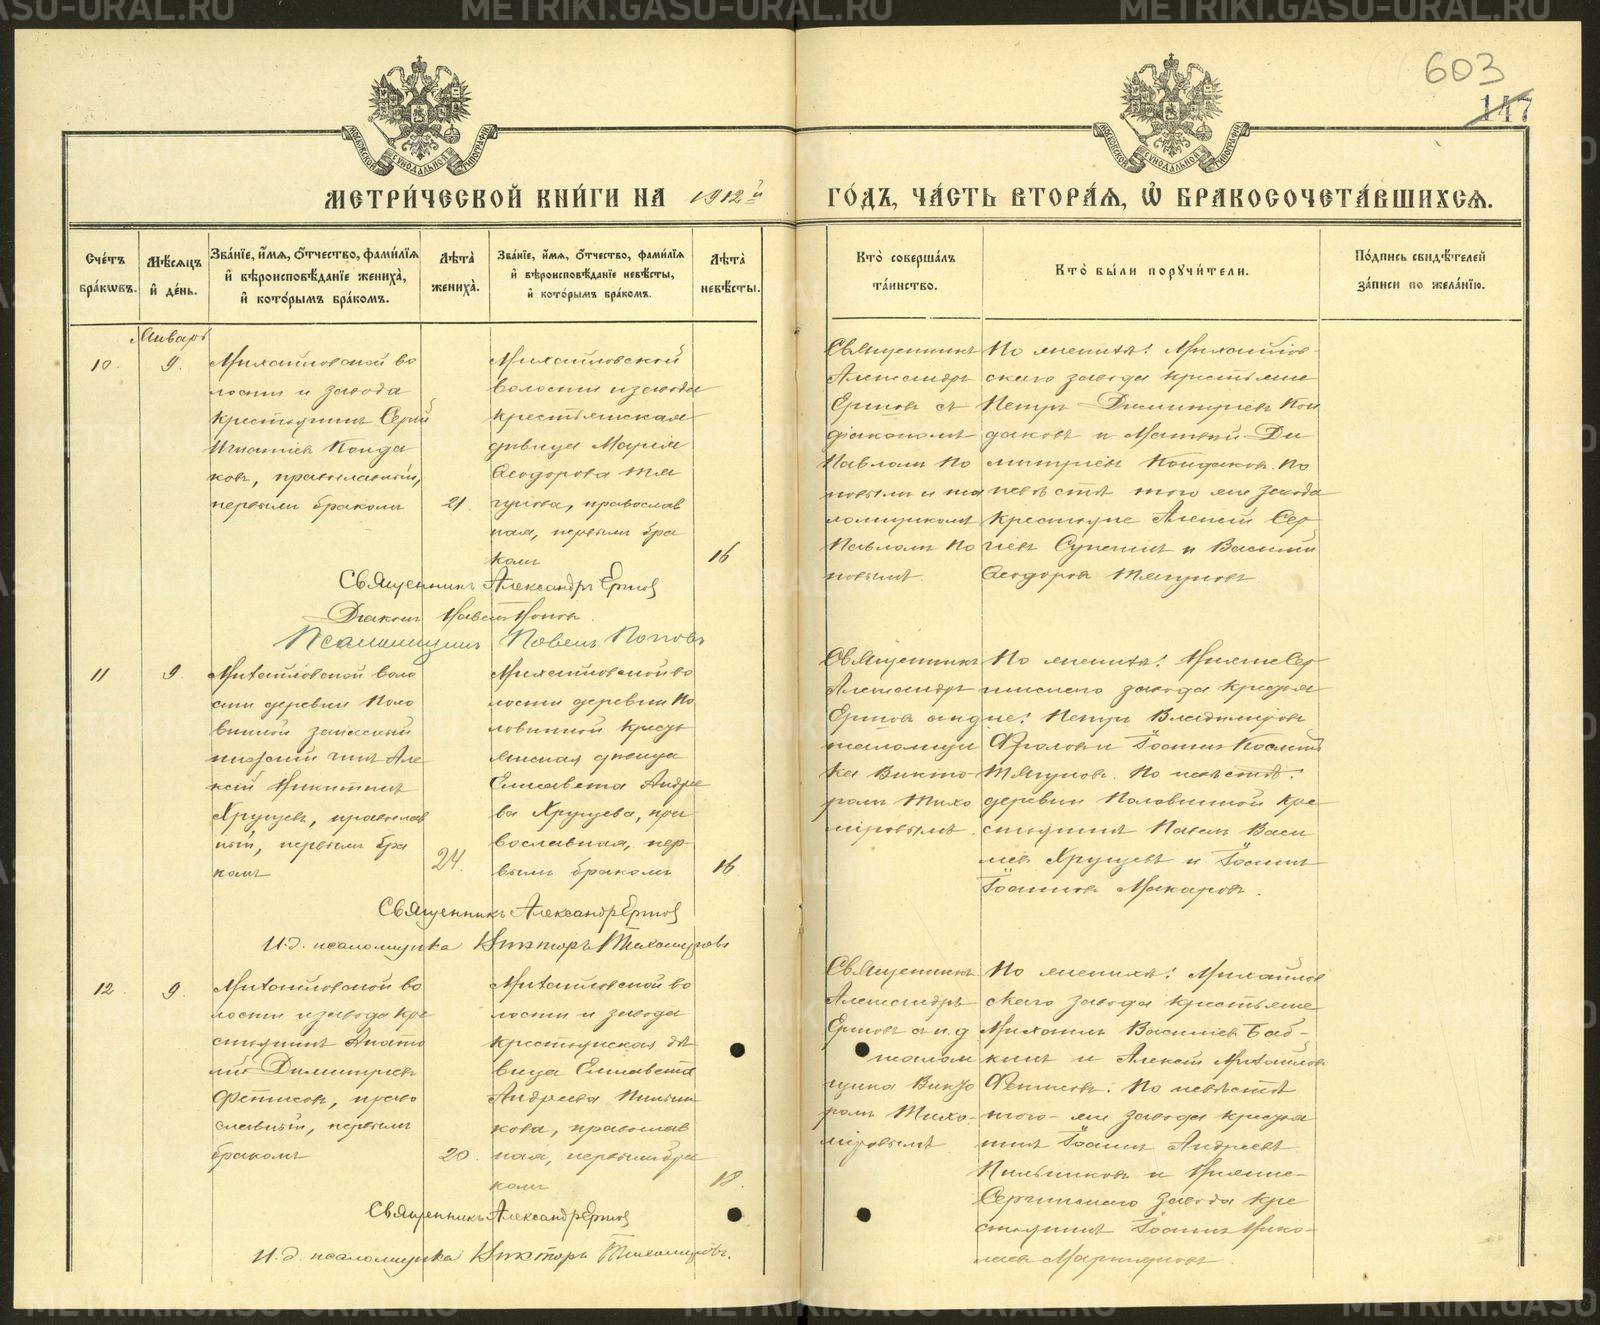 METRIKI.GASO-URAL.RU
603
147
МОСКОВСКОЙ СѴНОДАЛЬНОЙ ТИПОГРАФІИ
МОСКОВСКОЙ СѴНОДАЛЬНОЙ ТИПОГРАФІИ
МЕТРИ́ЧЕСКОЙ КНИ́ГИ НА 1912й ГО́ДЪ, ЧА́СТЬ ВТОРА́Я, Ѽ БРАКОСОЧЕТА́ВШИХСЯ.
Сче́тъ бра́кѡвъ.
Мѣ́сяцъ и҆ де́нь.
Зва́нїе, и҆́мя, ѻ҆́тчество, фами́лїя и҆ вѣроисповѣ́данїе жениха̀, и҆ кото́рымъ бра́комъ.
Лѣ́та жениха̀.
Зва́нїе, и҆́мя, ѻ҆́тчество, фами́лїя и҆ вѣроисповѣ́данїе невѣ́сты, и҆ кото́рымъ бра́комъ.
Лѣ́та невѣ́сты.
Кто̀ соверша́лъ та́инство.
Кто̀ бы́ли порꙋчи́тели.
По́дпись свидѣ́телей за́писи по жела́нїю.
Январь
10.
9.
Михайловской во
лости и завода
крестьянинъ Сергій
Игнатіевъ Конда
ковъ, православный,
первымъ бракомъ
21.
Михайловской
волости и завода
крестьянская
дѣвица Марія
Ѳеодорова Тя
гунова, православ
ная, первымъ бра
комъ
16
Священникъ
Александръ
Ершовъ съ
діакономъ
Павломъ По
повымъ и пса
ломщикомъ
Павломъ По
повымъ
По женихѣ: Михайлов-
скаго завода крестьяне
Петръ Димитріевъ Кон
даковъ и Матвѣй Ди
митріевъ Кондаковъ. По
невѣстѣ того же завода
крестьяне Алексѣй Сер
гіевъ и Василій
Ѳеодоровъ Тягуновъ
Священникъ Александръ Ершовъ
Діаконъ Павелъ Поповъ.
Псаломщикъ Павелъ Поповъ
11
9.
Михайловской воло
сти деревни Поло
винной запасный
нижній чинъ Але
ксѣй Никитинъ
Хрущевъ, православ
ный, первымъ бра
комъ
24.
Михайловской во
лости деревни По
ловинной крестьянская дѣвица
Елисавета Андрее
ва Хрущева, пра
вославная, пер-
вымъ бракомъ
16.
Священникъ
Александръ
Ершовъ
псаломщи
ка Викто-
ромъ Тихо
міровымъ.
По женихѣ: Нижне Сер
гинскаго завода крестья
не: Петръ Владиміровъ
Фроловъ и Іоаннъ
Тягуновъ. По невѣстѣ:
деревни Половинной кре-
стьянинъ Павелъ Васи
льевъ Хрущевъ и Іоаннъ
Іоанновъ Макаровъ.
Священникъ Александръ Ершовъ
И. д. псаломщика Викторъ Тихомировъ
12.
9.
Михайловской во
лости и завода кре
стьянинъ Анато
лій Димитріевъ
Фетисовъ, право
славный, первымъ
бракомъ
20.
Михайловской во
лости и завода
крестьянская дѣ
вица Елисавета
Андреева Пильни
кова, православ
ная, первымъ бра
комъ
18.
Священникъ
Александръ
Ершовъ с и. д
псалом
щика Викто
ромъ Тихо-
міровымъ
По женихѣ: Михайлов
скаго завода крестьяне
Михаилъ Василіевъ Баб-
кинъ и Алексѣй Михайловъ
Фетисовъ. По невѣстѣ
того-же завода крестья
нинъ Іоаннъ Андреевъ
Пильниковъ и Нижне-
Сергинскаго завода кре
стьянинъ Іоаннъ Нико-
лаевъ
Священникъ Александръ Ершовъ
И. д. псаломщика Викторъ Тихомировъ.